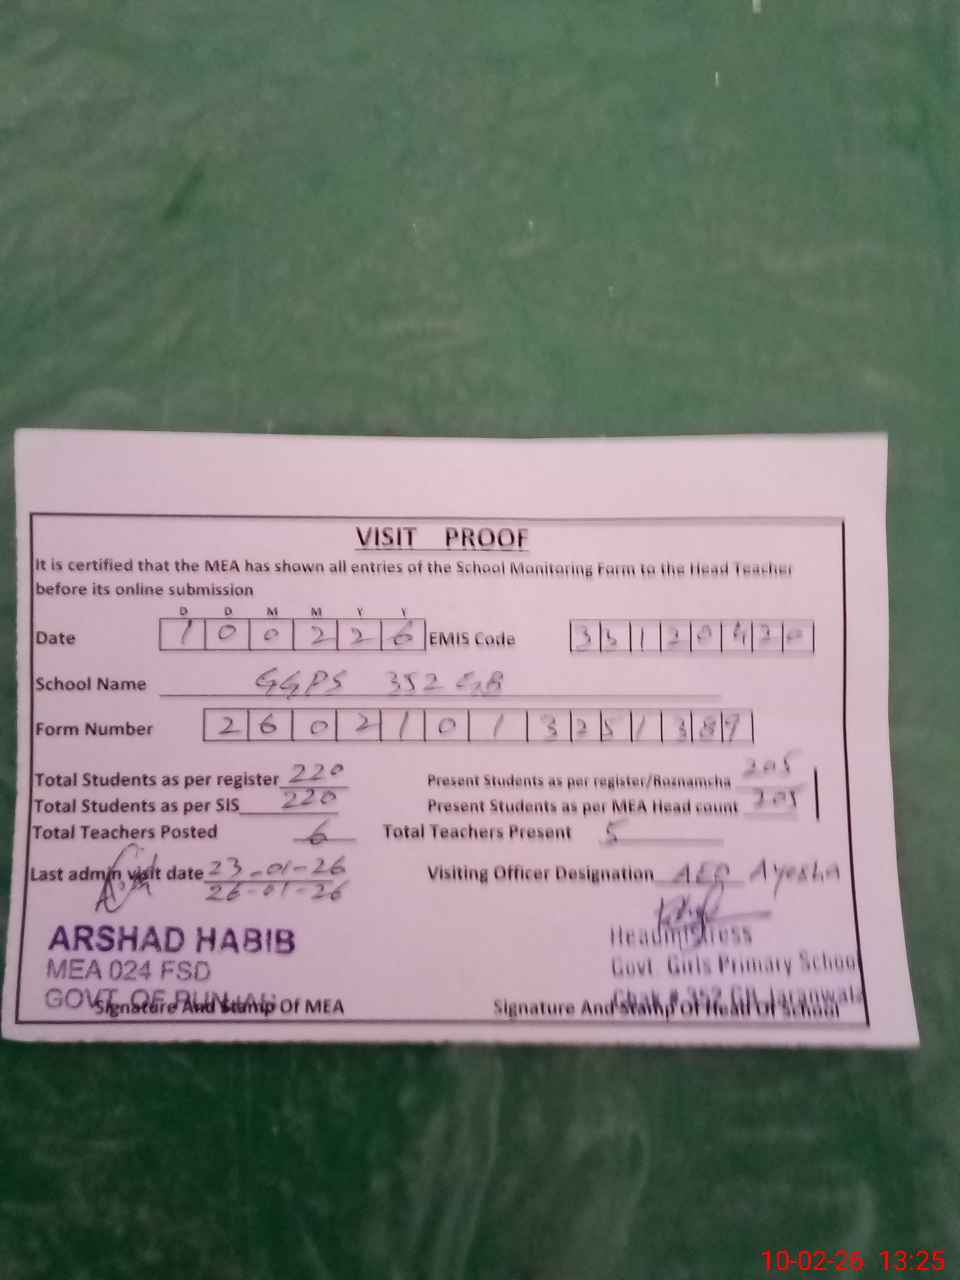 VISIT PROOF
It is certified that the MEA has shown all entries of the School Monitoring Form to the Head Teacher
before its online submission
D D M M Y Y
Date 1 0 0 2 2 6 EMIS Code 3 3 1 2 0 4 2 0
School Name GGPS 352 GB
Form Number 2 6 0 2 1 0 1 3 2 5 1 3 8 9
Total Students as per register 220 Present Students as per register/Roznamcha 205
Total Students as per SIS 220 Present Students as per MEA Head count 205
Total Teachers Posted 6 Total Teachers Present 5
Last admin visit date 23-01-26 Visiting Officer Designation AEO Ayesha
26-01-26
ARSHAD HABIB Headmistress
MEA 024 FSD Govt. Girls Primary School
GOVT. OF PUNJAB Chak # 352 GB Jaranwala
Signature And Stamp Of MEA Signature And Stamp Of Head Of School
10-02-26 13:25